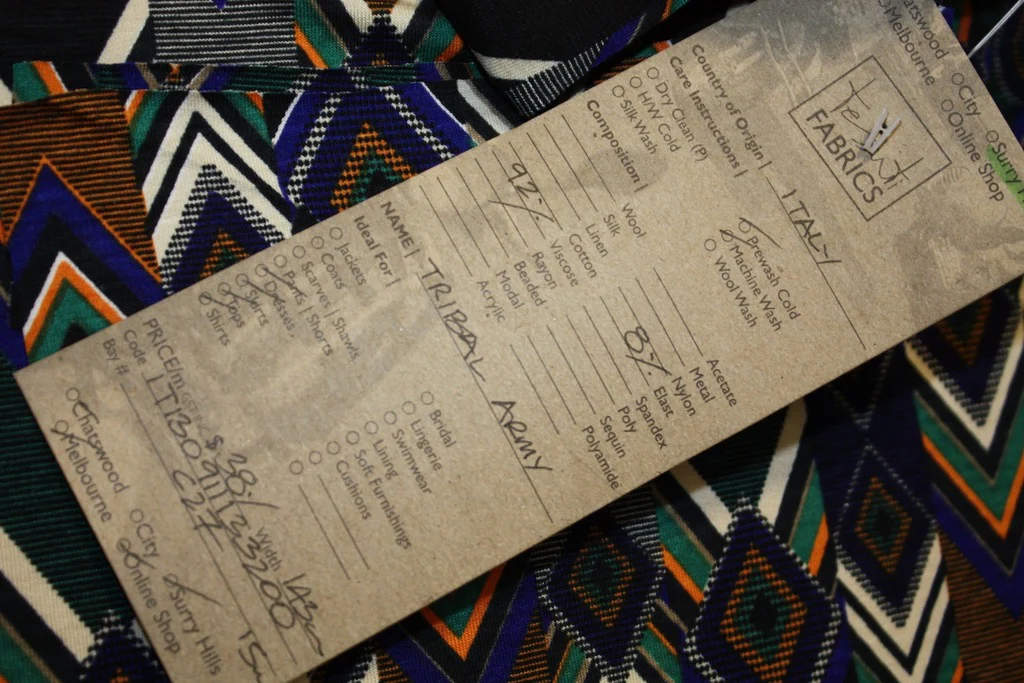 Chatswood
Melbourne
City
Online Shop
Surry
the fabric
FABRICS
Country of Origin | ITALY
Care Instructions |
Dry Clean (P)
H/W Cold
Silk Wash
Prewash Cold
Machine Wash
Wool Wash
Composition |
Wool
Silk
Linen
Cotton
92% Viscose
Rayon
Beaded
Modal
Acrylic
Acetate
Metal
Nylon
8% Elast
Spandex
Poly
Sequin
Polyamide
NAME| TRIBAL ARMY
Ideal For |
Jackets
Coats
Scarves | Shawls
Pants | Shorts
Dresses
Skirts
Tops
Shirts
Bridal
Lingerie
Swimwear
Lining
Soft Furnishings
Cushions
PRICE/m $ 38.- Width
Code
Bay # C27
Chatswood
Melbourne
City
Online Shop
Surry Hills